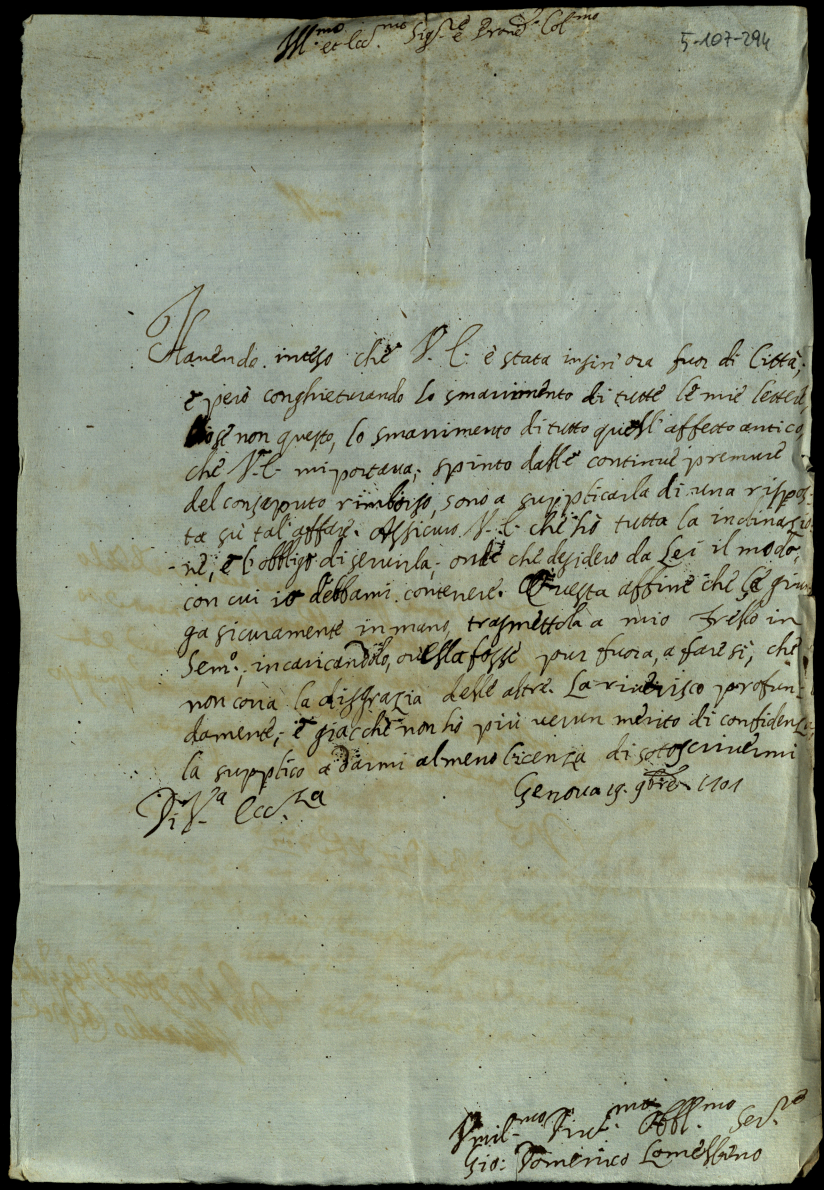 Ill.mo et Ecc.mo Sig.re e Pron.e Col.mo
5-107-294
Havendo inteso che V. E. è stata insin'ora fuor di Città;
e però conghieturando lo smarrimento di tutte le mie lettere,
ò se non questo, lo smarrimento di tutto quell'affetto antico,
che V. E. mi portava; spinto dalle continue premure
del consaputo rimborso, sono a supplicarla di una rispos-
ta sù tal'affare. Assicuro V. E. che hò tutta la inclinazio-
ne, e l'obbligo di servirla; onde che desidero da Lei il modo,
con cui io debbami contenere. Questa affine che le giun-
ga sicuramente in mano, trasmettola a mio Frello in
Sem.o, incaricandolo, ov'ella fosse pur fuora, a fare sì, che
non corra la disgrazia delle altre. La riverisco profun-
damente; e giacchè non hò più verun merito di confidenza,
la supplico a darmi almeno licenza di sotoscrivermi
Di V.a Ecc.za
Genova 19. 9bre 1701
Umil.mo Div.mo Obbl.mo Ser.re
Gio: Domenico Lomellino